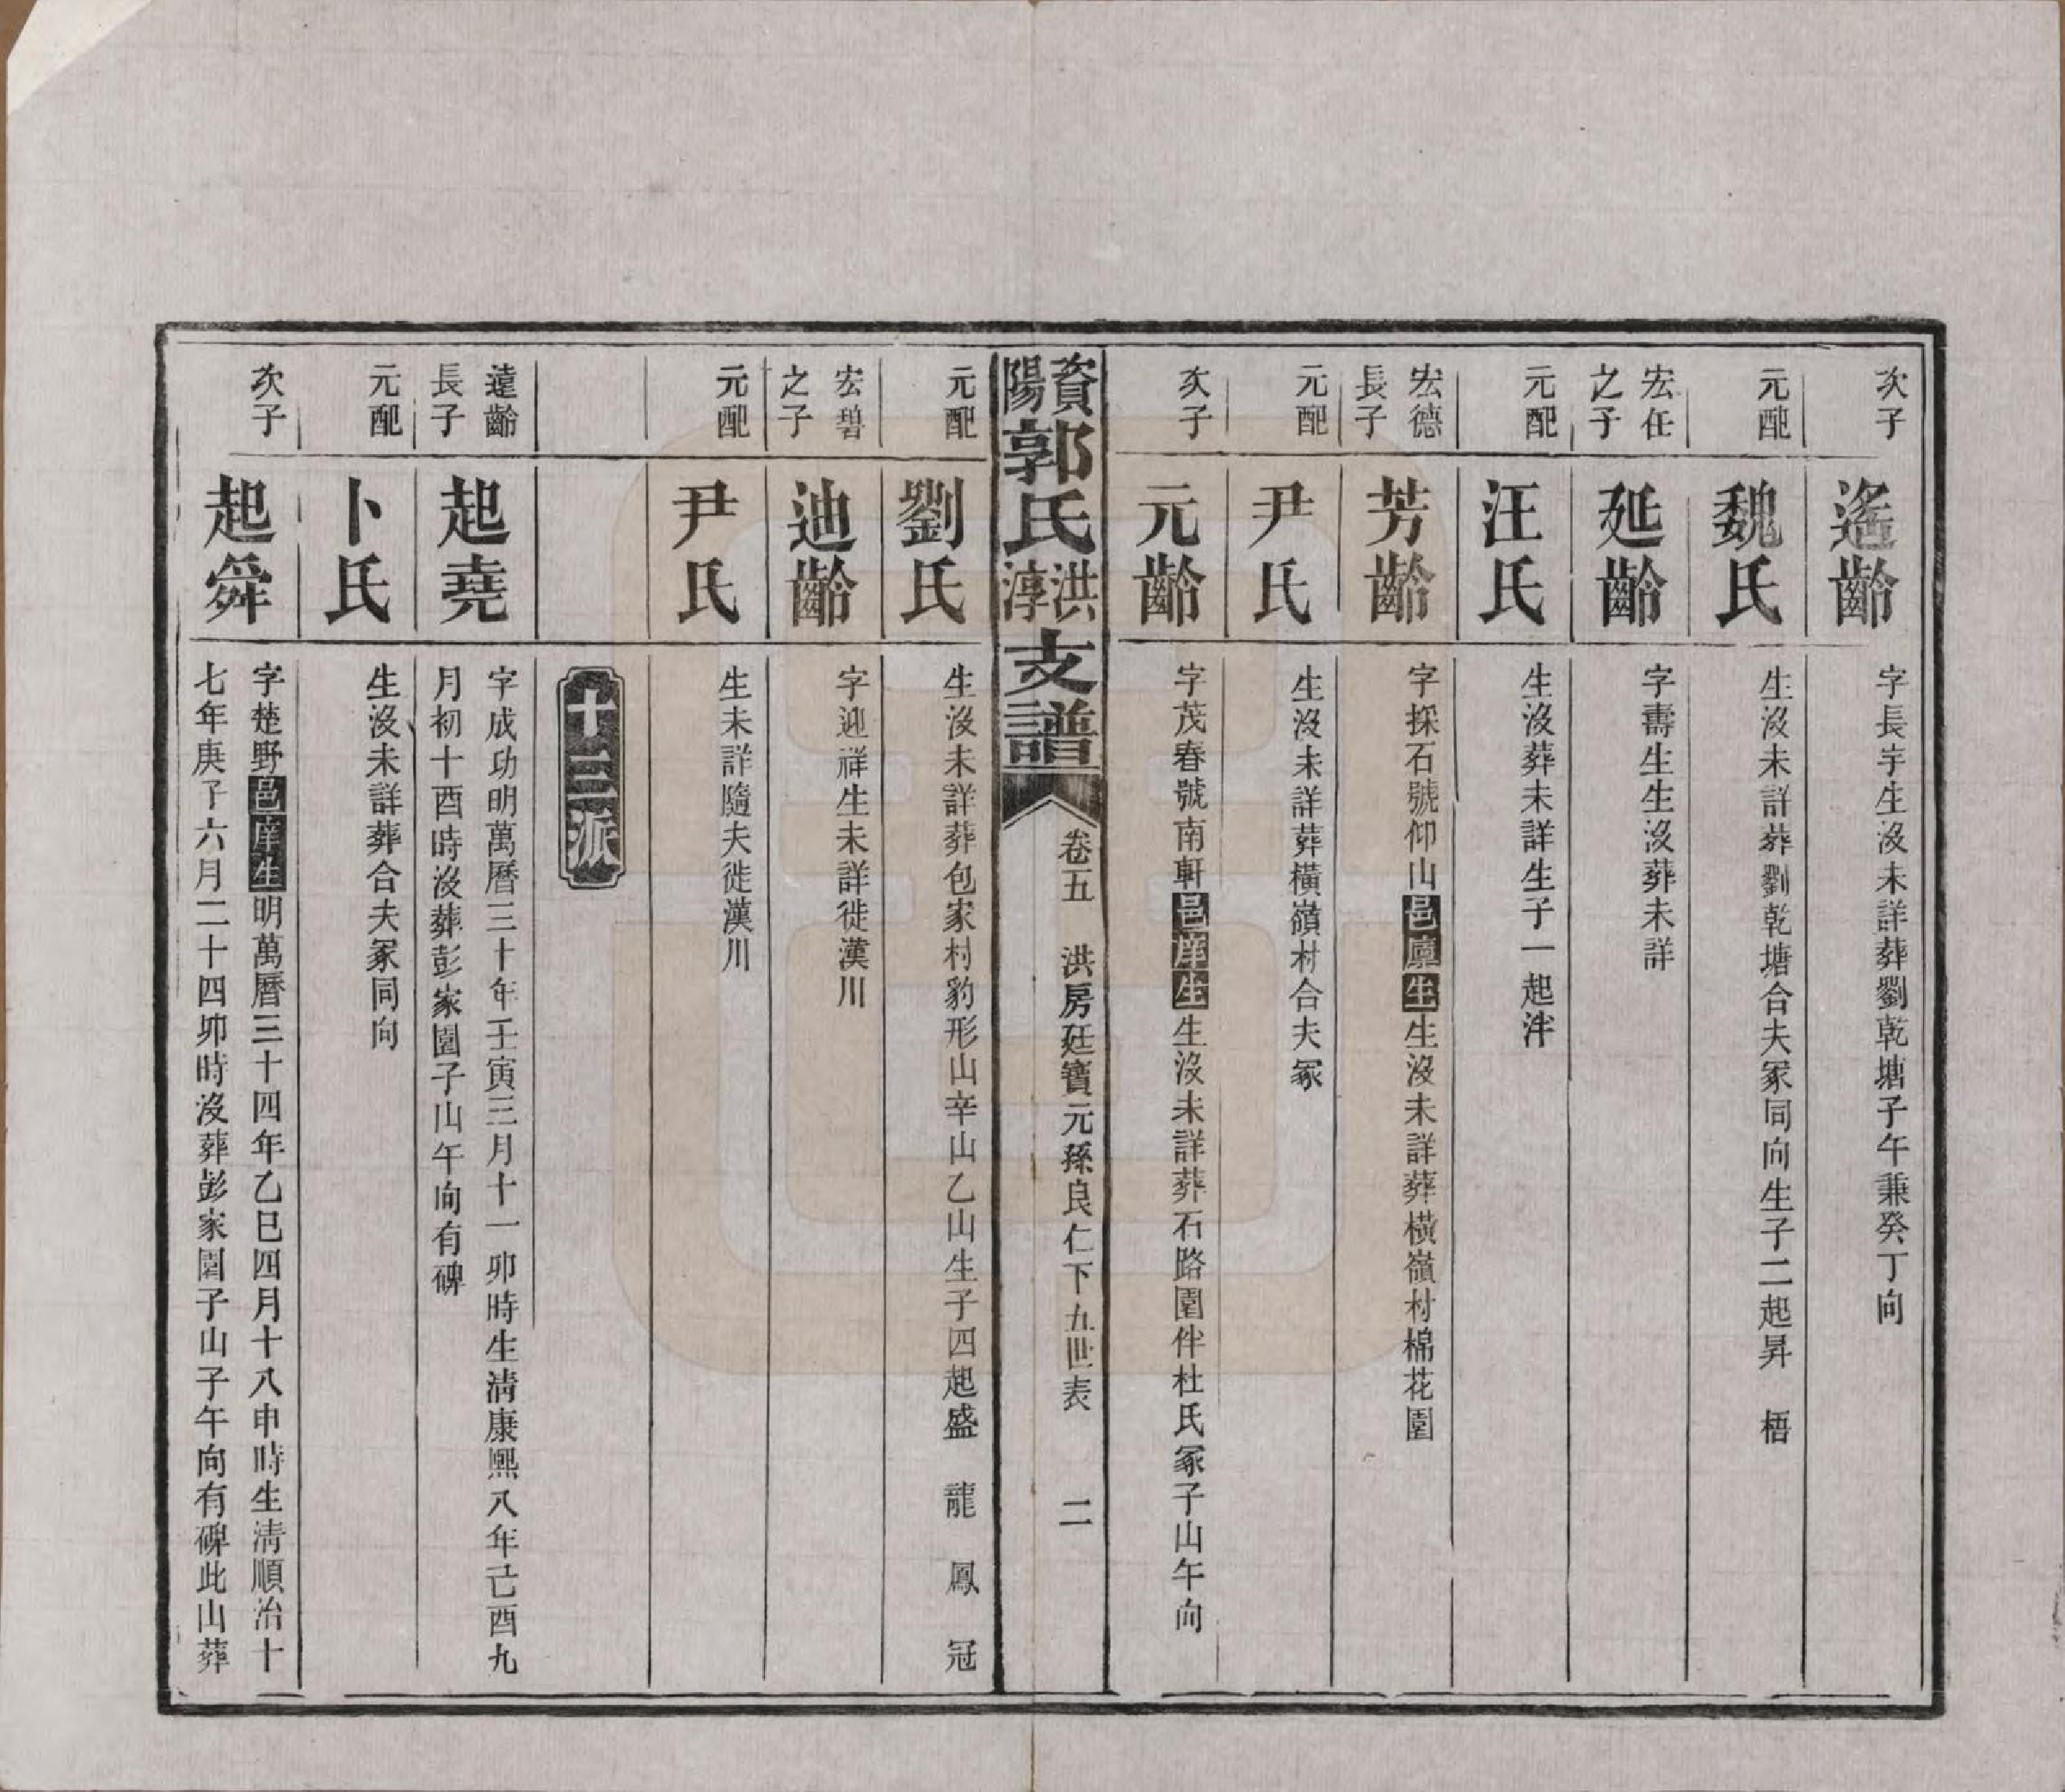 次子
遙齡
字長宇生沒未詳葬劉乾塘子午兼癸丁向
元配
魏氏
生沒未詳葬劉乾塘合夫冢同向生子二起昇　梧
宏任
之子
延齡
字壽生生沒葬未詳
元配
汪氏
生沒葬未詳生子一起泮
宏德
長子
芳齡
字採石號仰山邑廩生生沒未詳葬橫嶺村棉花園
元配
尹氏
生沒未詳葬橫嶺村合夫冢
次子
元齡
字茂春號南軒邑庠生生沒未詳葬石路園伴杜氏冢子山午向
資陽郭氏洪淳支譜
卷五　洪房廷寶元孫良仁下九世表　二
元配
劉氏
生沒未詳葬包家村豹形山辛山乙山生子四起盛　龍　鳳　冠
宏碧
之子
迪齡
字迎祥生未詳徙漢川
元配
尹氏
生未詳隨夫徙漢川
十三派
遠齡
長子
起堯
字成功明萬曆三十年壬寅三月十一卯時生清康熙八年己酉九
月初十酉時沒葬彭家園子山午向有碑
元配
卜氏
生沒未詳葬合夫冢同向
次子
起舜
字楚野邑庠生明萬曆三十四年乙巳四月十八申時生清順治十
七年庚子六月二十四卯時沒葬彭家園子山子午向有碑此山葬